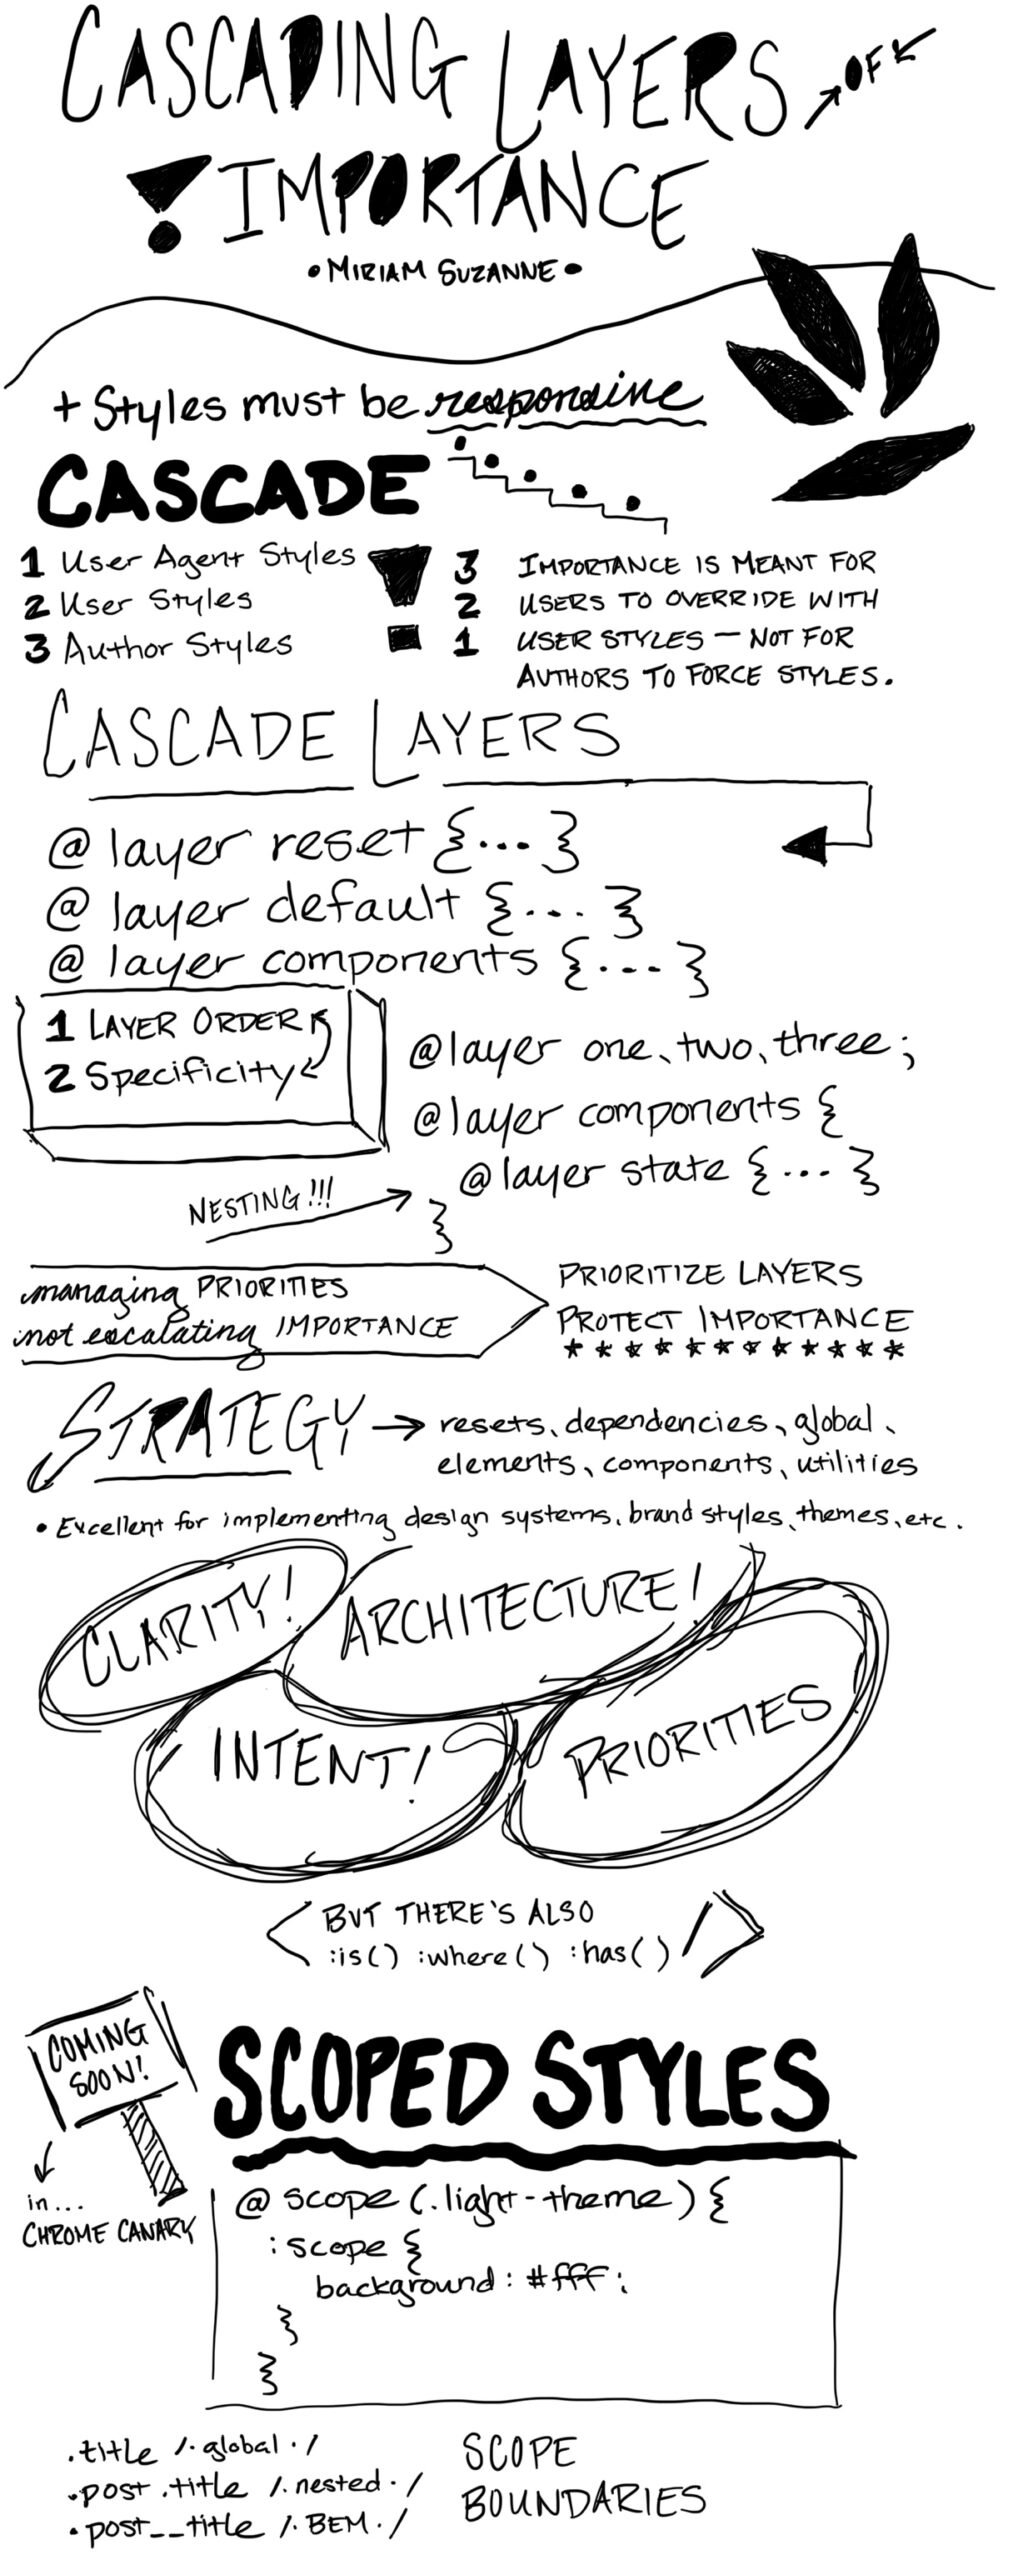 CASCADING LAYERS OF
! IMPORTANCE
• MIRIAM SUZANNE •
+ Styles must be responsive
CASCADE
1 User Agent Styles
2 User Styles
3 Author Styles
!
3
2
1
IMPORTANCE IS MEANT FOR
USERS TO OVERRIDE WITH
USER STYLES — NOT FOR
AUTHORS TO FORCE STYLES.
CASCADE LAYERS
@layer reset {... }
@layer default {... }
@layer components {... }
1 LAYER ORDER
2 Specificity
@layer one, two, three;
@layer components {
@layer state {... }
}
NESTING!!!
managing PRIORITIES
not escalating IMPORTANCE
PRIORITIZE LAYERS
PROTECT IMPORTANCE
* * * * * * * * * * * *
STRATEGY → resets, dependencies, global,
elements, components, utilities
• Excellent for implementing design systems, brand styles, themes, etc.
CLARITY!
ARCHITECTURE!
INTENT!
PRIORITIES
< BUT THERE'S ALSO
:is() :where() :has() />
COMING
SOON!
in...
CHROME CANARY
SCOPED STYLES
@scope (.light-theme) {
:scope {
background: #fff;
}
}
.title /· global ·/
.post .title /· nested ·/
.post__title /· BEM ·/
SCOPE
BOUNDARIES